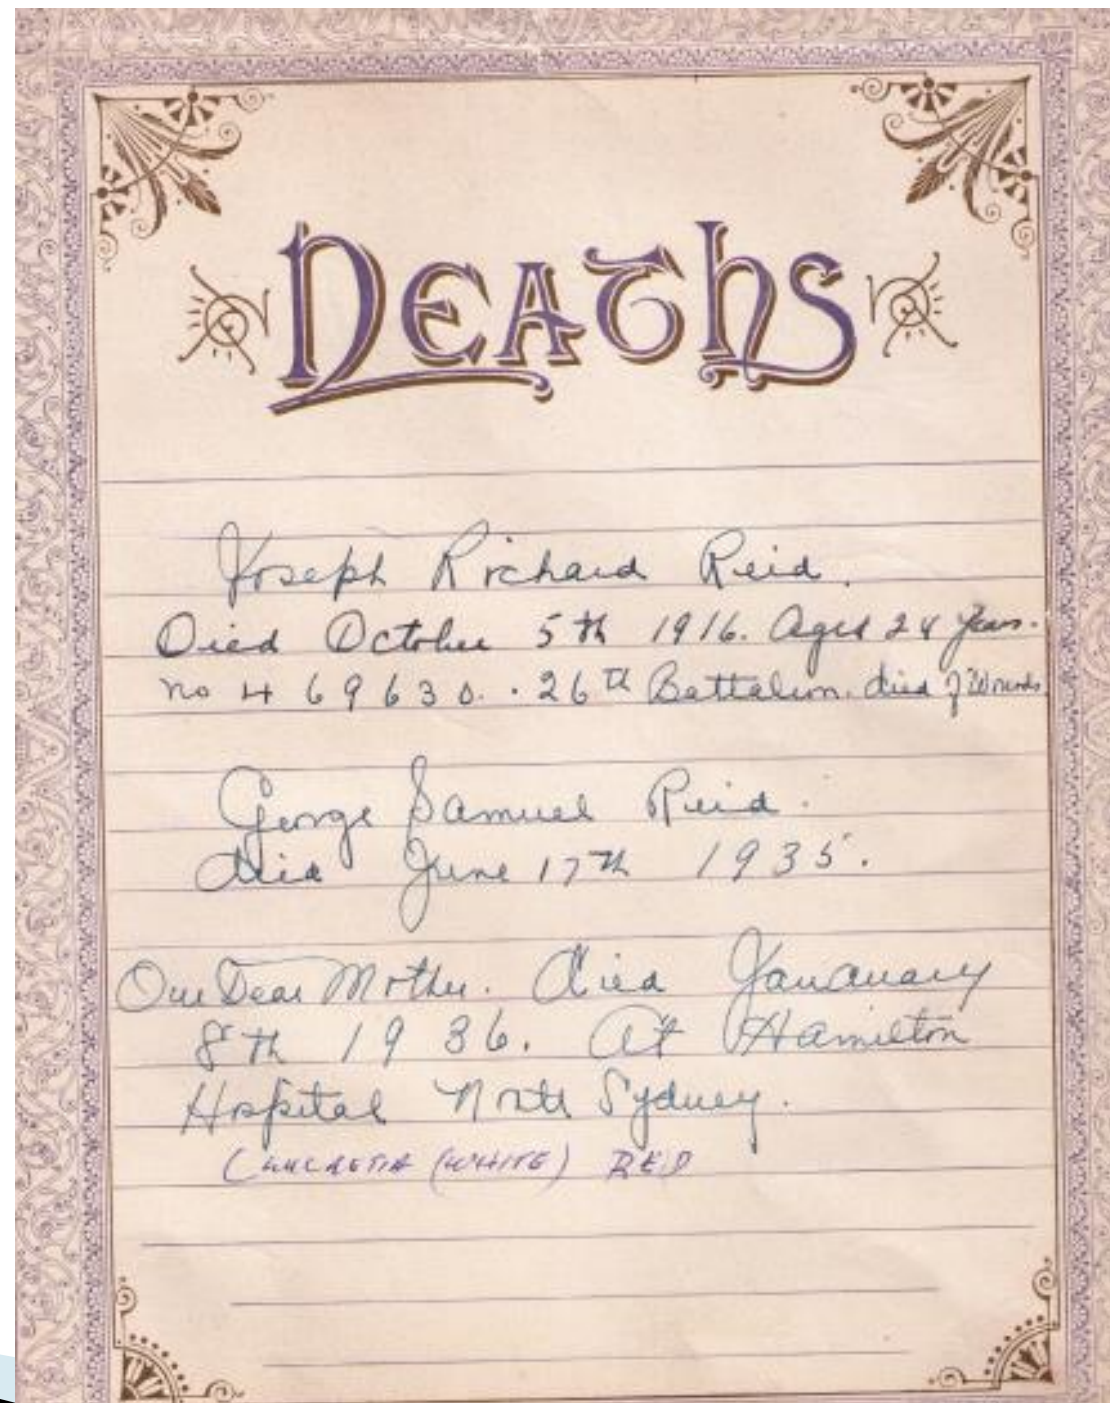 DEATHS
Joseph Richard Reid.
Died October 5th 1916. Aged 24 Years.
no 4 69630.. 26th Battalion. died of Wounds
George Samuel Reid.
died June 17th 1935.
Our Dear Mother. died Januauary
8th 1936. At Hamilton
Hospital North Sydney.
(LUCRETIA (WHITE) REID